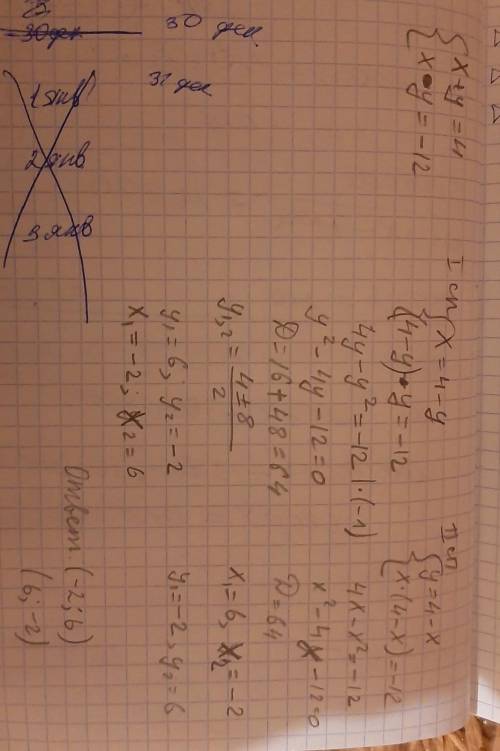 30 дек
30 дек.
31 дек
1 янв
2 янв
3 янв
{ x + y = 4
x • y = -12
I сп { x = 4 - y
(4 - y) • y = -12
4y - y² = -12 | · (-1)
y² - 4y - 12 = 0
D = 16 + 48 = 64
y₁,₂ = (4 ± 8)/2
y₁ = 6; y₂ = -2
x₁ = -2; x₂ = 6
II сп { y = 4 - x
x · (4 - x) = -12
4x - x² = -12
x² - 4x - 12 = 0
D = 64
x₁ = 6, x₂ = -2
y₁ = -2, y₂ = 6
Ответ (-2; 6)
(6; -2)